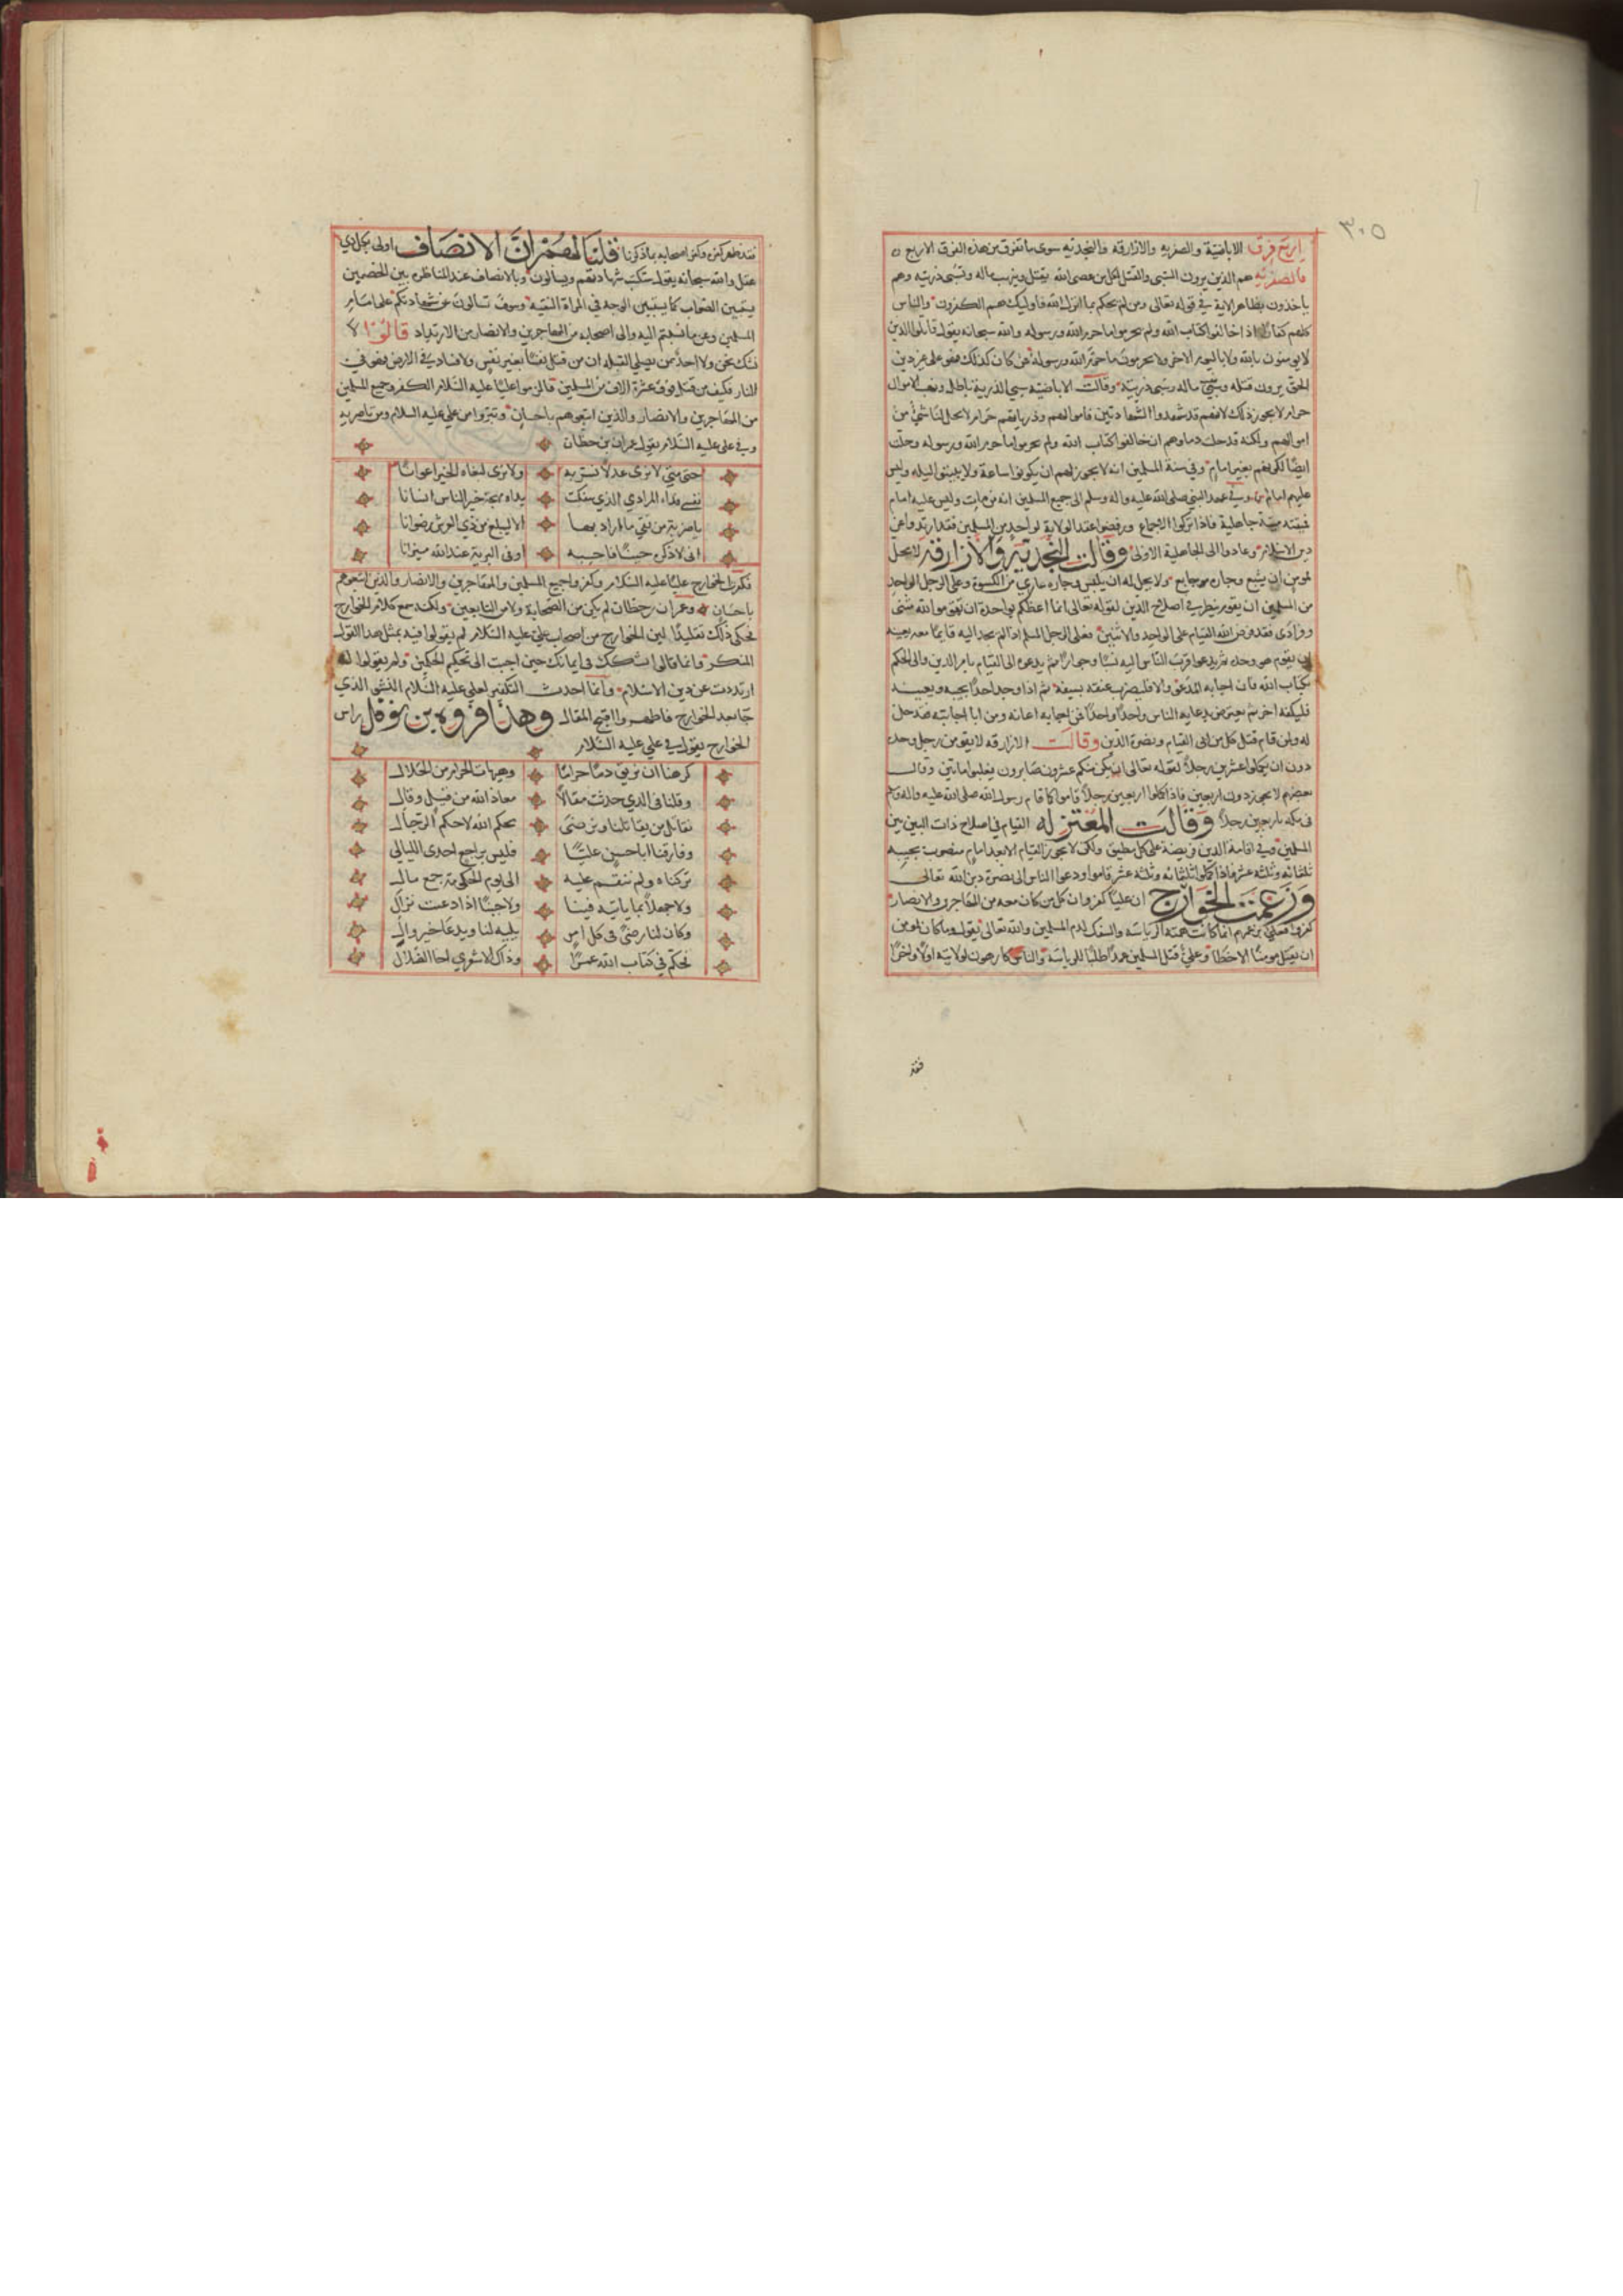 ٣٠٥
اربع فرق الاباضية والصفريه والازارقه والنجديه سوى ما تفرق من هذه الفرق الاربع
فالصفريه هم الذين يرون السبى والقتل لكل من عصى الله يقتل وينهب ماله وتسبى ذريته وهم
ياخذون بظاهر الاية في قوله تعالى ومن لم يحكم بما انزل الله فاوليك هم الكفرون والناس
كلهم كفار اذا خالفوا كتاب الله ولم يحرموا ما حرم الله ورسوله والله سبحانه يقول قاتلوا الذين
لا يومنون بالله ولا باليوم الاخر ولا يحرمون ما حرم الله ورسوله فمن كان كذلك فهو على غير دين
الحق يرون قتله وسبي ماله وسبى ذريته وقالت الاباضيه سبي الذرية باطل ونهب الاموال
حرام لا يجوز ذلك لانهم قد شهدوا الشهادتين فاموالهم وذراريهم حرام لا يحل لنا شي من
اموالهم ولكنه قد حلت دماوهم ان خالفوا كتاب الله ولم يحرموا ما حرم الله ورسوله وحلت
ايضا لكونهم بغير امام وفي سنة المسلمين انه لا يجوز لهم ان يكونوا ساعة ولا يبيتوا ليله وليس
عليهم امام وفي عهد النبي صلى الله عليه واله وسلم الى جميع المسلمين انه من مات وليس عليه امام
فميتته ميتة جاهلية فاذا تركوا الاجماع ورفضوا عقد الولاية لواحد من المسلمين فقد ارتدوا عن
دين الاسلام وعادوا الى الجاهلية الاولى وقالت النجديه والازارقه لا يحل
لمومن ان يشبع وجاره جايع ولا يحل له ان يلبس وجاره عاري من الكسوة وعلى الرجل الواحد
من المسلمين ان يقوم ينظر في اصلاح الدين لقوله تعالى انما اعظكم بواحدة ان تقوموا لله مثنى
وفرادى فقد فرض الله القيام على الواحد والاثنين فعلى الرجل المسلم اذا لم يجد اليه قايما معه يعينه
ان يقوم هو وحده ثم يدعوا اقرب الناس اليه نسبا وجوارا ثم يدعوه الى القيام بامر الدين والى الحكم
بكتاب الله فان اجابه المدعو والا فليضرب عنقه بسيفه ثم اذا وجد احدا يجيبه ويعينه
فليكفه اخر ثم يعترض بدعايه الناس واحدا واحدا فمن اجابه اعانه ومن ابا اجابته فقد حل
له ولمن قام قتل كل من ابى القيام ونصرة الدين وقالت الازارقه لا يقومن رجل وحده
دون ان يكملوا عشرين رجلا لقوله تعالى ان يكن منكم عشرون صابرون يغلبوا مايتين وقال
بعضهم لا يجوز دون اربعين فاذا كملوا اربعين رجلا قاموا كما قام رسول الله صلى الله عليه واله وسلم
في مكه باربعين رجلا وقالت المعتزله القيام في اصلاح ذات البين بين
المسلمين وفي اقامة الدين فريضة على كل مطيق ولكن لا يجوز القيام الا بعد امام منصوب يجيبه
ثلثمائه وثلثه عشر فاذا كملوا ثلثمائه وثلثه عشر قاموا ودعوا الناس الى نصرة دين الله تعالى
وزعمت الخوارج ان عليا كفر وان كل من كان معه من المهاجرين والانصار
كفروا فعلي بزعمهم انما كانت همته الرياسه والسفك لدم المسلمين والله تعالى يقول وما كان لمومن
ان يقتل مومنا الا خطا وعلي قتل المسلمين عمدا طلبا للرياسة والناس كارهون لولايته اولا واخرا
فقد
فقد ظهر كفره وكفر اصحابه بما ذكرنا قلنا لهم ان الانصاف اولى بكل ذي
عقل والله سبحانه يقول ستكتب شهادتهم ويسالون وبالانصاف عند المناظره بين الخصمين
يتبين الصواب كما يتبين الوجه في المراة النقيه وسوف تسالون عن شهادتكم على امام
المسلمين وعن ما نسبتم اليه والى اصحابه من المهاجرين والانصار من الارتداد قالوا لا
نشك نحن ولا احد من يصلي القبله ان من قتل نفسا بغير نفس ولا فساد في الارض فهو في
النار فكيف من قتل فوق عشرة الاف من المسلمين فالزموا عليا عليه السلام الكفر وجميع المسلمين
من المهاجرين والانصار والذين اتبعوهم باحسان وتبروا من علي عليه السلام ومن ناصريه
وفي على عليه السلام يقول عمران بن حطان
حتى متى لا نرى عدلا نسر به ولا نرى لبغاه الخير اعوانا
نفسي فداء المرادي الذي سفكت يداه مهجة خير الناس انسانا
يا ضربة من تقي ما اراد بها الا ليبلغ من ذي العرش رضوانا
انى لاذكره حينا فاحسبه اوفى البرية عند الله ميزانا
فكفرت الخوارج عليا عليه السلام وكفروا جميع المسلمين والمهاجرين والانصار والذين اتبعوهم
باحسان وعمران بن حطان لم يكن من الصحابة ولا من التابعين ولكنه سمع كلام الخوارج
فحكى ذلك تقليدا لمن الخوارج من اصحاب علي عليه السلام لم يقولوا فيه بمثل هذا القول
المنكر وانما قالوا تشككت في ايمانك حين اجبت الى تحكيم الحكمين ولم يقولوا له
ارتددت عن دين الاسلام وانما احدث التكفير لعلي عليه السلام النشو الذي
جا بعد الخوارج فاظهروا اقبح المقال وهذا فروه بن نوفل راس
الخوارج يقول في علي عليه السلام
كرهنا ان نريق دما حراما وهيهات الحرام من الحلال
وقلنا فى الذي حدثت مقالا معاذ الله من قيل وقال
نقاتل من يقاتلنا ونرضى بحكم الله لا حكم الرجال
وفارقنا ابا حسن عليا فليس براجع احدى الليالي
تركناه ولم ننقم عليه الى يوم الحكومة جمع مال
ولا جهلا بما ياتيه فينا ولا جبنا اذا دعت نزال
وكان لنا رضى فى كل امر يليه لنا ويدعا خير وال
فحكم في كتاب الله عمرا وذاك الاشعري اخا الضلال